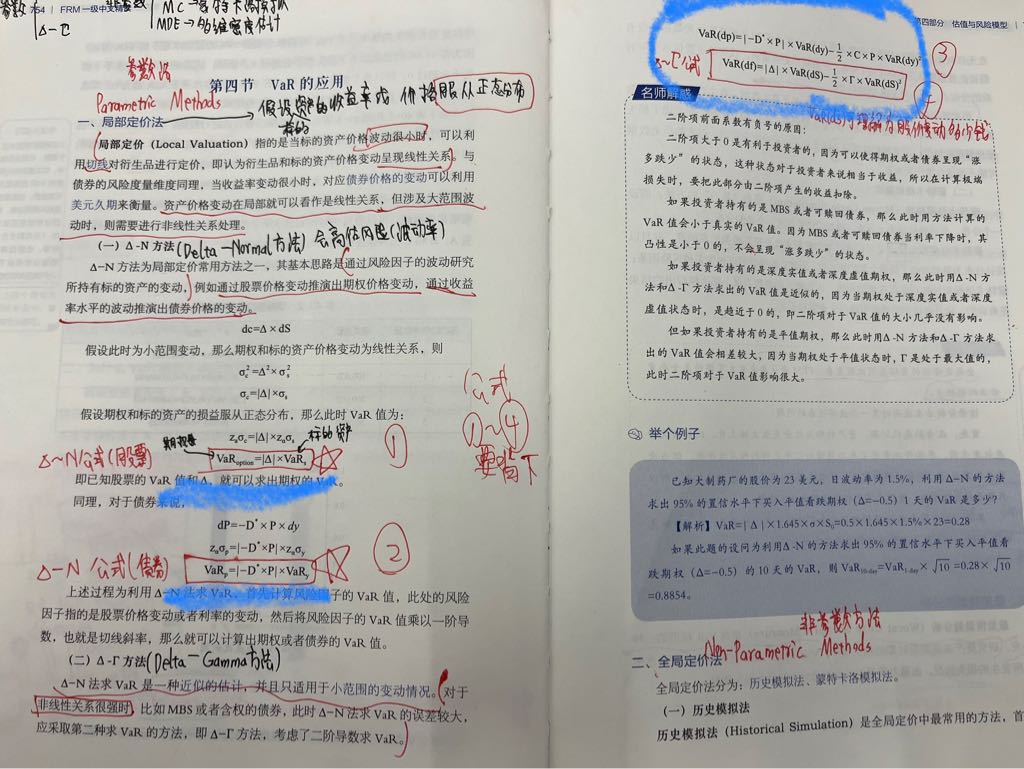 参数
MC→蒙特卡洛模拟
△-
MDE→多维密度估计
754 | FRM 一级中文精要
参数法
第四节 VaR 的应用
Parametric Methods
假设资产的收益率或价格服从正态分布
标的
一、局部定价法
局部定价（Local Valuation）指的是当标的资产价格波动很小时，可以利
用切线对衍生品进行定价，即认为衍生品和标的资产价格变动呈现线性关系。与
债券的风险度量维度同理，当收益率变动很小时，对应债券价格的变动可以利用
美元久期来衡量。资产价格变动在局部就可以看作是线性关系，但涉及大范围波
动时，则需要进行非线性关系处理。
（一）Δ-N 方法(Delta-Normal方法) 会高估风险(波动率)
Δ-N 方法为局部定价常用方法之一，其基本思路是通过风险因子的波动研究
所持有标的资产的变动，例如通过股票价格变动推演出期权价格变动，通过收益
率水平的波动推演出债券价格的变动。
dc=Δ×dS
假设此时为小范围变动，那么期权和标的资产价格变动为线性关系，则
σc²=Δ²×σs²
σc=|Δ|×σs
假设期权和标的资产的损益服从正态分布，那么此时 VaR 值为：
zασc=|Δ|×zασs
标的资产
Δ~N公式(股票)
VaRoption=|Δ|×VaRs
①
即已知股票的 VaR 值和 Δ，就可以求出期权的 VaR。
同理，对于债券来说，
dP=−D*×P×dy
zασp=|−D*×P|×zασy
Δ-N 公式(债券)
VaRp=|−D*×P|×VaRy
②
上述过程为利用 Δ−N 法求 VaR，首先计算风险因子的 VaR 值，此处的风险
因子指的是股票价格变动或者利率的变动，然后将风险因子的 VaR 值乘以一阶导
数，也就是切线斜率，那么就可以计算出期权或者债券的 VaR 值。
（二）Δ-Γ 方法(Delta-Gamma方法)
Δ−N 法求 VaR 是一种近似的估计，并且只适用于小范围的变动情况。对于
非线性关系很强时，比如 MBS 或者含权的债券，此时 Δ−N 法求 VaR 的误差较大，
应采取第二种求 VaR 的方法，即 Δ−Γ 方法，考虑了二阶导数求 VaR。
公式
①~④
要背下
第四部分 估值与风险模型
VaR(dp)=|−D*×P|×VaR(dy)−½×C×P×VaR(dy)²
③
Δ~Γ公式
VaR(df)=|Δ|×VaR(dS)−½×Γ×VaR(dS)²
④
名师解惑
VaR(ds)可理解为股价变动了多少钱
二阶项前面系数有负号的原因：
二阶项大于 0 是有利于投资者的，因为可以使得期权或者债券呈现“涨
多跌少”的状态，这种状态对于投资者来说相当于收益，所以在计算极端
损失时，要把此部分由二阶项产生的收益扣除。
如果投资者持有的是 MBS 或者可赎回债券，那么此时用方法计算的
VaR 值会小于真实的 VaR 值。因为 MBS 或者可赎回债券当利率下降时，其
凸性是小于 0 的，不会呈现“涨多跌少”的状态。
如果投资者持有的是深度实值或者深度虚值期权，那么此时用 Δ-N 方
法和 Δ-Γ 方法求出的 VaR 值是近似的，因为当期权处于深度实值或者深度
虚值状态时，是趋近于 0 的，即二阶项对于 VaR 值的大小几乎没有影响。
但如果投资者持有的是平值期权，那么此时用 Δ-N 方法和 Δ-Γ 方法求
出的 VaR 值会相差较大，因为当期权处于平值状态时，Γ 是处于最大值的，
此时二阶项对于 VaR 值影响很大。
举个例子
已知大制药厂的股价为 23 美元，日波动率为 1.5%，利用 Δ−N 的方法
求出 95% 的置信水平下买入平值看跌期权（Δ=−0.5）1 天的 VaR 是多少？
【解析】VaR=| Δ |×1.645×σ×S₀=0.5×1.645×1.5%×23=0.28
如果此题的设问为利用 Δ-N 的方法求出 95% 的置信水平下买入平值看
跌期权（Δ=−0.5）的 10 天的 VaR，则 VaR10-day=VaR1-day×√10 =0.28× √10
=0.8854。
非参数方法
Non-Parametric Methods
二、全局定价法
全局定价法分为：历史模拟法、蒙特卡洛模拟法。
（一）历史模拟法
历史模拟法（Historical Simulation）是全局定价中最常用的方法，首